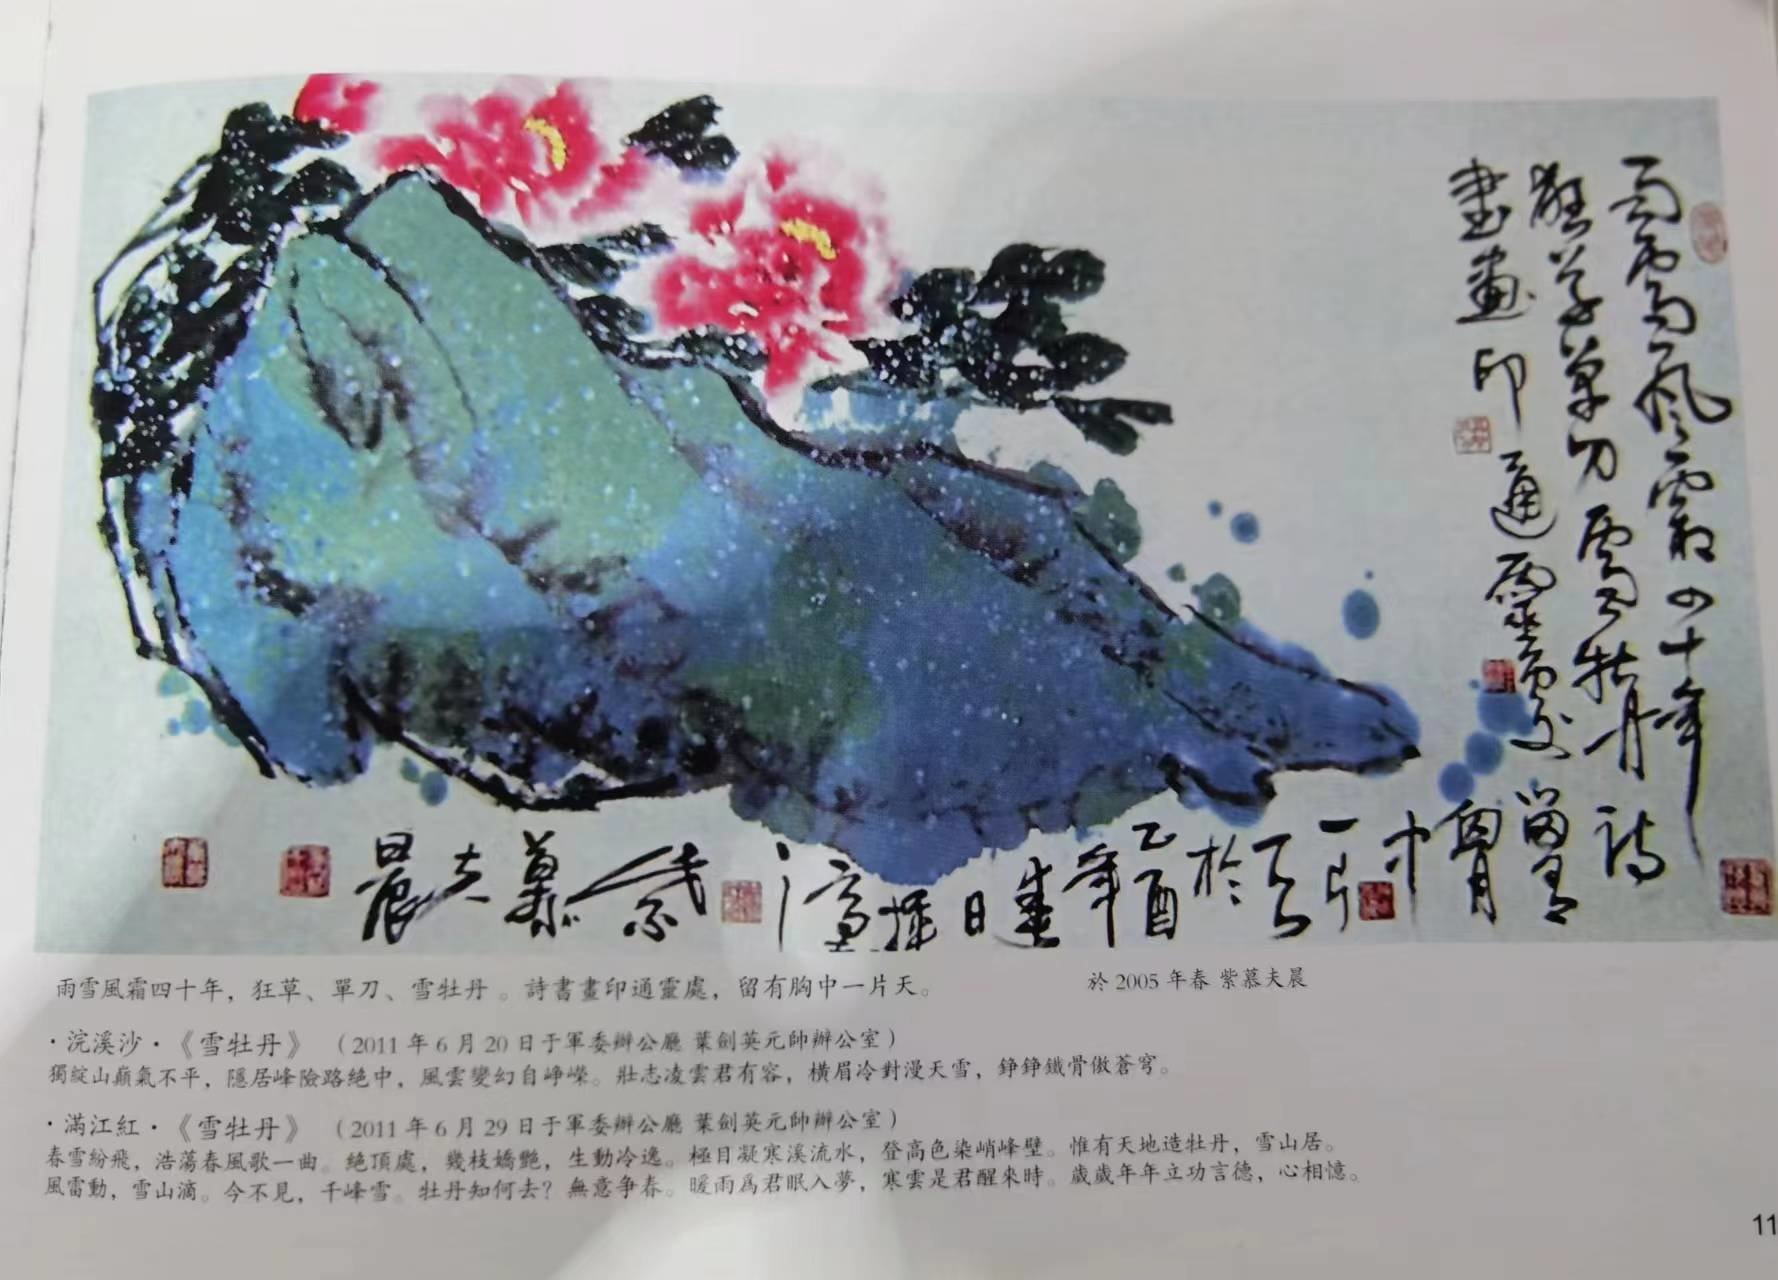 雨雪風霜四十年
狂草單刀雪牡丹詩
書畫印
通靈處留有
胸中一片天於乙酉年春日
紫慕夫晨
雨雪風霜四十年，狂草、單刀、雪牡丹。詩書畫印通靈處，留有胸中一片天。 於2005年春 紫慕夫晨
·浣溪沙·《雪牡丹》 （2011年6月20日于軍委辦公廳 葉劍英元帥辦公室）
獨綻山巔氣不平，隱居峰險路絕中，風雲變幻自崢嶸。壯志凌雲君有容，橫眉冷對漫天雪，錚錚鐵骨傲蒼穹。
·滿江紅·《雪牡丹》 （2011年6月29日于軍委辦公廳 葉劍英元帥辦公室）
春雪紛飛，浩蕩春風歌一曲。絕頂處，幾枝嬌艷，生動冷逸。極目凝寒溪流水，登高色染峭峰壁。惟有天地造牡丹，雪山居。
風雷動，雪山滴。今不見，千峰雪。牡丹知何去？無意争春。暖雨爲君眠入夢，寒雲是君醒來時。歲歲年年立功言德，心相憶。
11